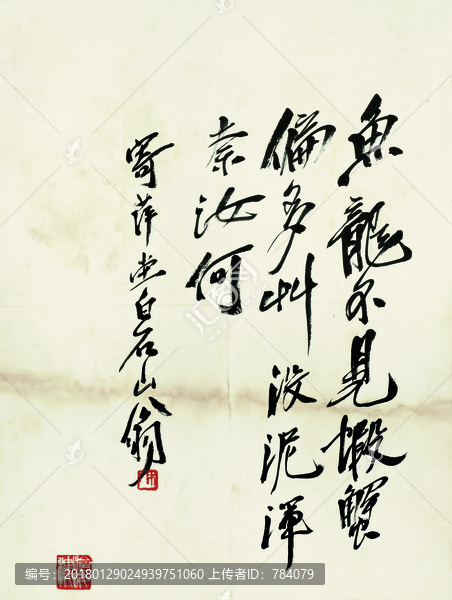 魚龍不見蝦蟹
偏多艸沒泥渾
柰汝何
寄萍堂白石山翁
编号：20180129024939751060 上传者ID：784079